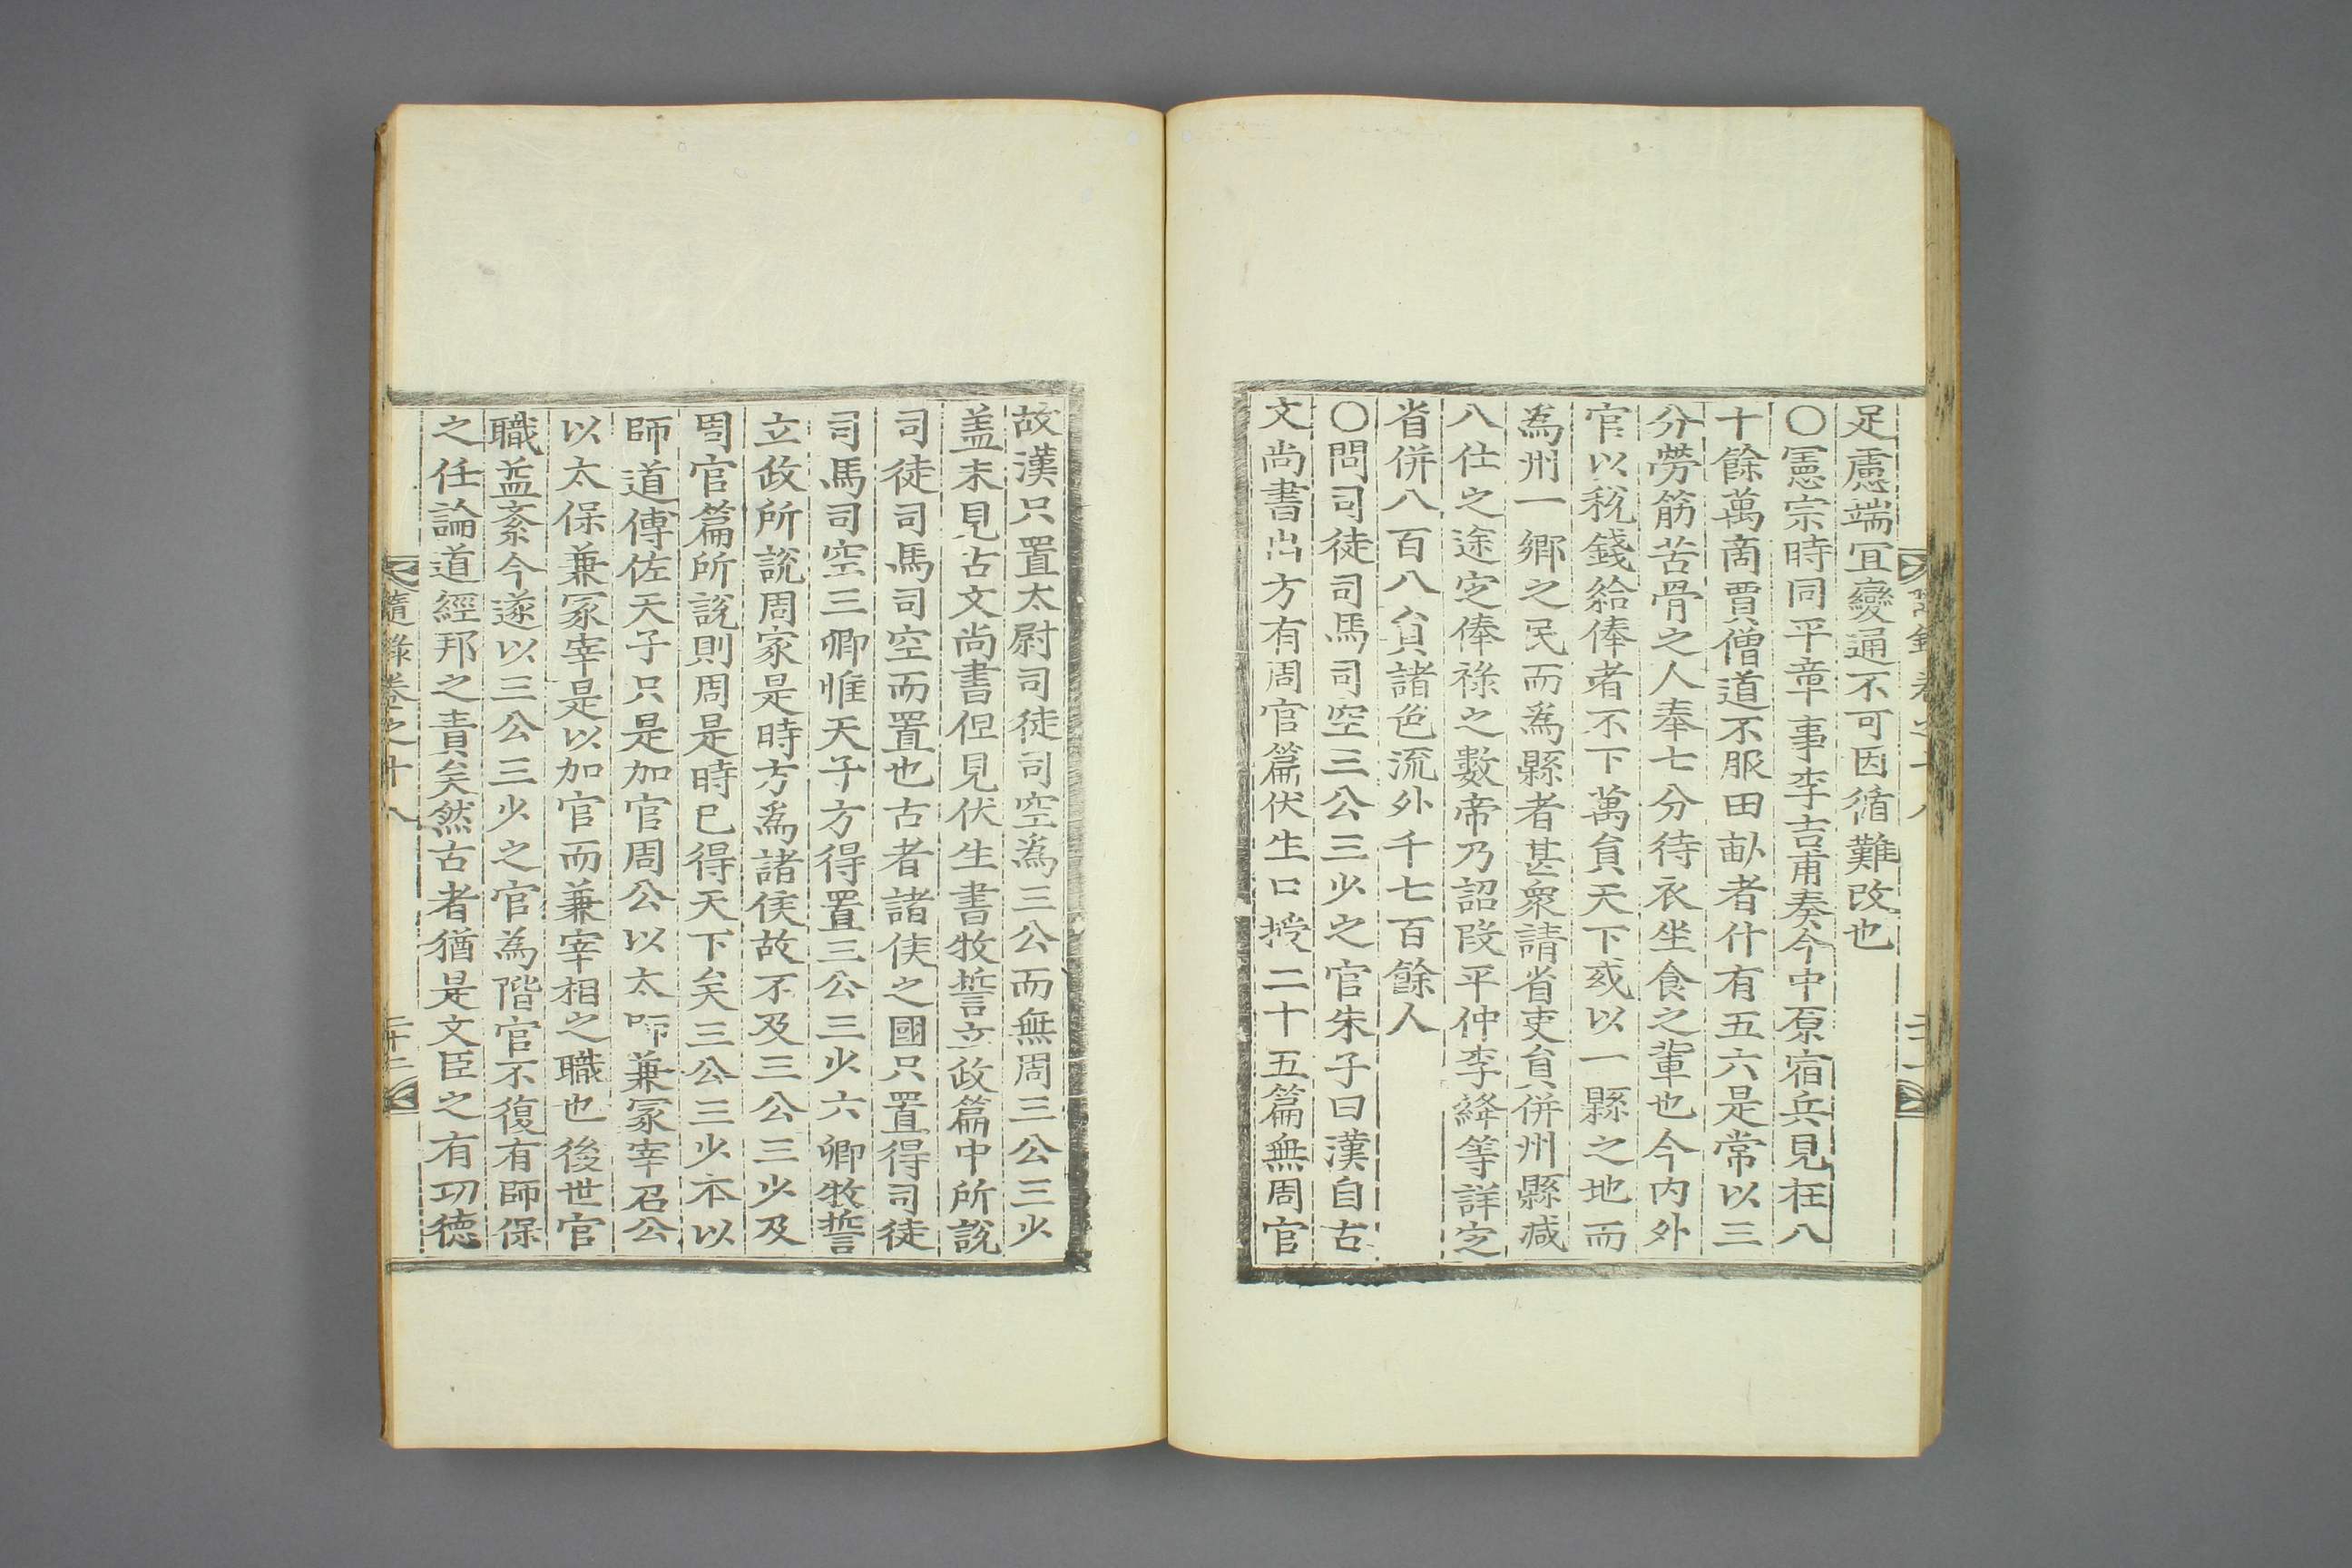 足慮端宜變通不可因循難改也
〇憲宗時同平章事李吉甫奏今中原宿兵見在八
十餘萬商賈僧道不服田畝者什有五六是常以三
分勞筋苦骨之人奉七分待衣坐食之輩也今內外
官以稅錢給俸者不下萬員天下或以一縣之地而
為州一鄉之民而為縣者甚衆請省吏員併州縣减
八仕之途定俸祿之數帝乃詔段平仲李絳等詳定
省併八百八員諸色流外千七百餘人
〇問司徒司馬司空三公三少之官朱子曰漢自古
文尚書出方有周官篇伏生口授二十五篇無周官
故漢只置太尉司徒司空為三公而無周三公三少
盖未見古文尚書但見伏生書牧誓立政篇中所說
司徒司馬司空而置也古者諸侯之國只置得司徒
司馬司空三卿惟天子方得置三公三少六卿牧誓
立政所說周家是時方為諸侯故不及三公三少及
周官篇所說則周是時已得天下矣三公三少本以
師道傅佐天子只是加官周公以太師兼冢宰召公
以太保兼冢宰是以加官而兼宰相之職也後世官
職益紊今遂以三公三少之官為階官不復有師保
之任論道經邦之責矣然古者猶是文臣之有功德
隨錄卷之十八
二十二